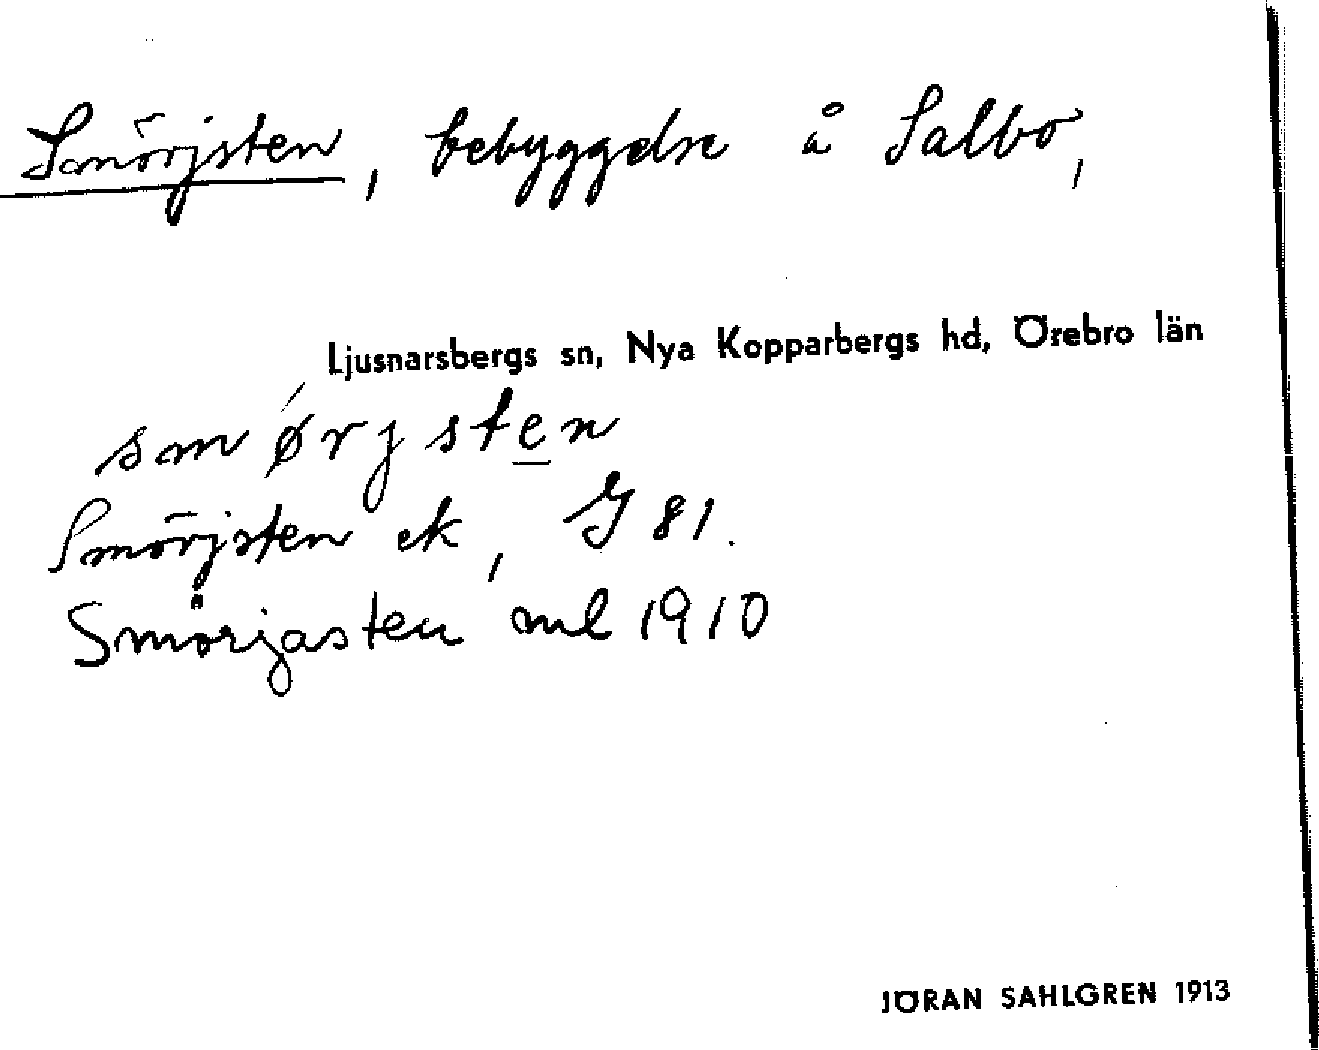 Smörjsten, bebyggelse å Salbo,
Ljusnarsbergs sn, Nya Kopparbergs hd, Örebro län
smǿrjsten
Smörjsten ek, G 81.
Smörjasten ml 1910
JÖRAN SAHLGREN 1913